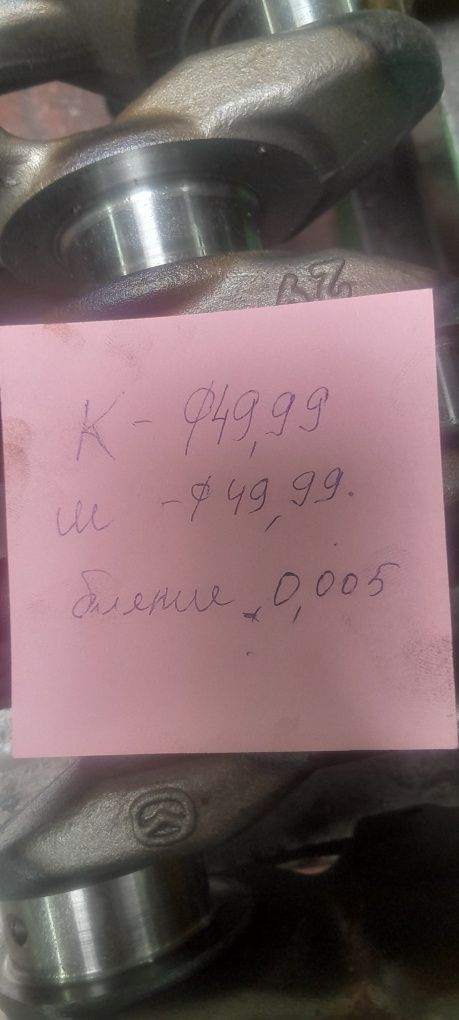 B96
К - ⌀49,99
ш - ⌀49,99.
биение 0,005